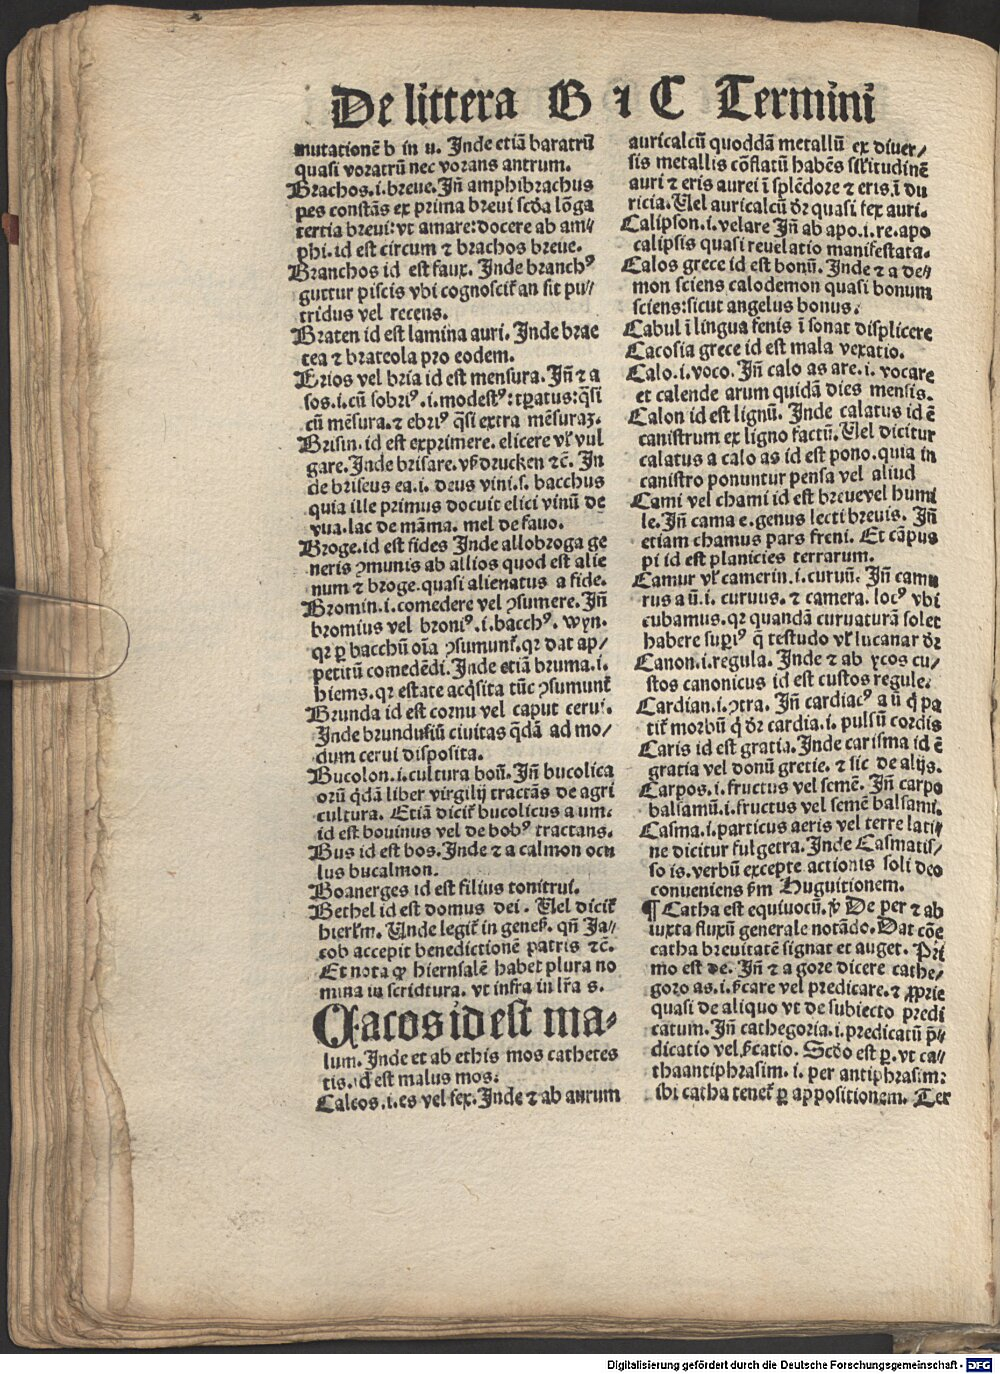 De littera B ⁊ C Termini
mutationē b in u. Inde etiā baratrū
quasi voratrū nec vorans antrum.
Brachos.i.breue. Iñ amphibrachus
pes constās ex prima breui scd̄a lōga
tertia breui: vt amare: docere ab am⸗
phi. id est circum ⁊ brachos breue.
Branchos id est faux. Inde branchꝰ
guttur piscis vbi cognoscit᷑ an sit pu⸗
tridus vel recens.
Braten id est lamina auri. Inde brae
tea ⁊ brateola pro eodem.
Brios vel bria id est mensura. Iñ ⁊ a
sos.i.cū sobriꝰ.i.modestꝰ: tꝑatus: q̄si
cū mēsura. ⁊ ebriꝰ q̄si extra mēsuraꝫ.
Brisin. id est exprimere. elicere vl̓ vul
gare. Inde brisare. vß drucken ⁊c̄. In
de briseus ea.i. deus vini.s. bacchus
quia ille primus docuit elici vinū de
vua. lac de māma. mel de fauo.
Broge. id est fides Inde allobroga ge
neris ꝯmunis ab allios quod est alie
num ⁊ broge. quasi alienatus a fide.
Bromin.i.comedere vel ꝯsumere. Iñ
bromius vel broniꝰ.i.bacchꝰ. wyn.
qꝛ ꝑ bacchū oīa ꝯsumunt᷑. qꝛ dat ap⸗
petitū comedēdi. Inde etiā bruma.i.
hiems. qꝛ estate acq̄sita tūc ꝯsumunt᷑
Brunda id est cornu vel caput cerui.
Inde brundusiū ciuitas q̄dā ad mo⸗
dum cerui disposita.
Bucolon.i.cultura boū. Iñ bucolica
orū q̄dā liber virgilij tractās de agri
cultura. Etiā dicit᷑ bucolicus a um.
id est bouinus vel de bobꝰ tractans.
Bus id est bos. Inde ⁊ a calmon ocu
lus bucalmon.
Boanerges id est filius tonitrui.
Bethel id est domus dei. Uel dicit᷑
hierl̓m. Unde legit᷑ in geneß. qñ Ja⸗
cob accepit benedictionē patris ⁊c̄.
Et nota ꝙ hiernsalē habet plura no
mina in scridtura. vt infra in lr̄a s.
Cacos id est ma⸗
lum. Inde et ab ethis mos cathetes
tis. id est malus mos.
Calcos.i.es vel fex. Inde ⁊ ab aurum
auricalcū quoddā metallū ex diuer⸗
sis metallis cōflatū habēs sil̓itudinē
auri ⁊ eris aurei ī splēdore ⁊ eris ī du
ricia. Uel auricalcū dr̄ quasi fex auri.
Calipson.i.velare Iñ ab apo.i.re. apo
calipsis quasi reuelatio manifestata.
Calos grece id est bonū. Inde ⁊ a de⸗
mon sciens calodemon quasi bonum
sciens: sicut angelus bonus.
Cabul ī lingua fenis ī sonat displicere
Cacosia grece id est mala vexatio.
Calo.i.voco. Iñ calo as are.i. vocare
et calende arum quidā dies mensis.
Calon id est lignū. Inde calatus id ē
canistrum ex ligno factū. Uel dicitur
calatus a calo as id est pono. quia in
canistro ponuntur pensa vel aliud
Cami vel chami id est breuevel humi
le. Iñ cama e. genus lecti breuis. Iñ
etiam chamus pars freni. Et cāpus
pi id est planicies terrarum.
Camur vl̓ camerin.i.curuū. Iñ camu
rus a ū.i. curuus. ⁊ camera. locꝰ vbi
cubamus. qꝛ quandā curuaturā solet
habere suꝑiꝰ q̄ testudo vl̓ lucanar dr̄
Canon.i.regula. Inde ⁊ ab ycos cu⸗
stos canonicus id est custos regule.
Cardian.i.ꝯtra. Iñ cardiacꝰ a ū q̇ pa
tit᷑ morbū q̇ dr̄ cardia.i. pulsū cordis
Caris id est gratia. Inde carisma id ē
gratia vel donū gretie. ⁊ sic de alijs.
Carpos.i.fructus vel semē. Iñ carpo
balsamū.i.fructus vel semē balsami.
Casma.i.particus aeris vel terre lati⸗
ne dicitur fulgetra. Inde Casmatis⸗
so is. verbū excepte actionis soli deo
conueniens ẜm Huguitionem.
¶ Catha est equiuocū. ꝟ De per ⁊ ab
iuxta fluxū generale notādo. Dat cōe
catha breuitatē signat et auget. Pri
mo est de. Iñ ⁊ a gore dicere cathe⸗
goro as.i. p̄care vel predicare. ⁊ ꝓprie
quasi de aliquo vt de subiecto predi
catum. Iñ cathegoria.i. predicatū p̄⸗
dicatio vel p̄catio. Scd̄o est ꝑ. vt ca⸗
thaantiphrasim.i. per antiphrasim:
ibi catha tenet᷑ ꝑ appositionem. Ter
Digitalisierung gefördert durch die Deutsche Forschungsgemeinschaft - DFG